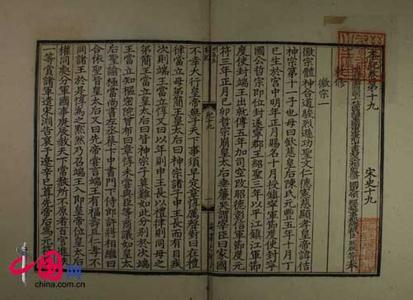 宋史十九
徽宗
徽宗體神合道駿烈遜功聖文仁德憲慈顯孝皇帝諱佶
神宗第十一子也母曰欽慈皇后陳氏元豐五年十月丁
巳生於宮中明年正月賜名十月授鎮寧軍節度使封寧
國公哲宗即位封遂寧郡王紹聖三年以平江鎮江軍節
度使封端王出就傅五年加司空改昭德彰信軍節度元
符三年正月己卯哲宗崩皇太后垂簾哭謂宰臣曰家國
不幸大行皇帝無子天下事須早定章惇厲聲對曰在禮
律當立母弟簡王皇太后曰神宗諸子申王長而有目疾
次則端王當立惇又曰以年則申王長以禮律則同母之
弟簡王當立皇太后曰皆神宗子莫難如此分別於次端
王當立知樞密院曾布曰章惇未嘗與臣等商議如皇太
后聖諭極當尚書左丞蔡卞中書門下侍郎許將相繼曰
合依聖旨皇太后又曰先帝嘗言端王有福壽且仁孝不
同諸王於是惇為之默然乃召端王入即皇帝位皇太后
權同處分軍國事庚辰赦天下常赦所不原者百官進秩
一等賞諸軍遣宋淵告哀于遼辛巳尊先帝后為元符皇
中国网
china.com.cn